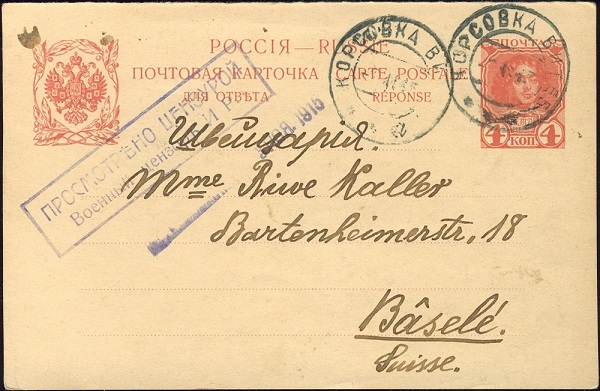 РОССІЯ — RUSSIE
ПОЧТОВАЯ КАРТОЧКА CARTE POSTALE
ДЛЯ ОТВѢТА RÉPONSE
КОРСОВКА ВИ
КОРСОВКА ВИТЕБ
ПОЧТО
4 КОП 4
ПРОСМОТРЕНО ЦЕНЗУРОЙ
Военный Цензоръ
1915
Швейцарія.
Mme Riwe Kaller
Bartenheimerstr, 18
Bâselé.
Suisse.